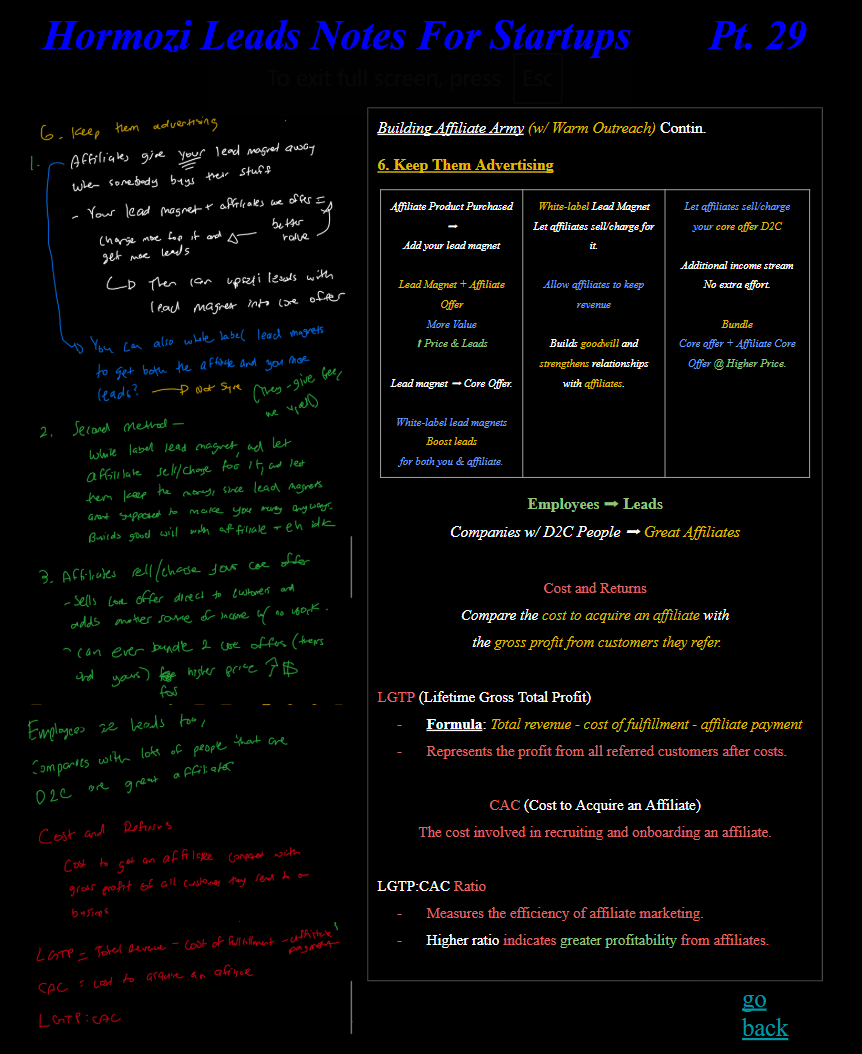 Hormozi Leads Notes For Startups Pt. 29
To exit full screen, press Esc
6. Keep them advertising
1. Affiliates give your lead magnet away
when somebody buys their stuff
- Your lead magnet + affiliates we offer =
better value
Charge more for it and
get more leads
Then can upsell leads with
lead magnet into core offer
You can also white label lead magnets
to get both the affiliate and you more
leads? Not Sure
(They - give free,
we upsell)
2. Second Method —
White label lead magnet, and let
affiliate sell/charge for it, and let
them keep the money, since lead magnets
arent supposed to make you money anyways.
Builds good will with affiliate + eh idk
3. Affiliates sell/charge your core offer
- Sells core offer direct to customers and
adds another source of income w/ no work.
- can even bundle 2 core offers (theirs
and yours) for higher price ↑ $
Employees are leads too,
Companies with lots of people that are
D2C are great affiliates
Cost and Returns
Cost to get an affiliate compared with
gross profit of all customers they send to our
business
LGTP = Total Revenue - Cost of fulfillment - affiliate
payment
CAC = Cost to acquire an affiliate
LGTP:CAC
Building Affiliate Army (w/ Warm Outreach) Contin.
6. Keep Them Advertising
Affiliate Product Purchased
➞
Add your lead magnet
Lead Magnet + Affiliate
Offer
More Value
⬆ Price & Leads
Lead magnet ➞ Core Offer.
White-label lead magnets
Boost leads
for both you & affiliate.
White-label Lead Magnet
Let affiliates sell/charge for
it.
Allow affiliates to keep
revenue
Builds goodwill and
strengthens relationships
with affiliates.
Let affiliates sell/charge
your core offer D2C
Additional income stream
No extra effort.
Bundle
Core offer + Affiliate Core
Offer @ Higher Price.
Employees ➞ Leads
Companies w/ D2C People ➞ Great Affiliates
Cost and Returns
Compare the cost to acquire an affiliate with
the gross profit from customers they refer.
LGTP (Lifetime Gross Total Profit)
- Formula: Total revenue - cost of fulfillment - affiliate payment
- Represents the profit from all referred customers after costs.
CAC (Cost to Acquire an Affiliate)
The cost involved in recruiting and onboarding an affiliate.
LGTP:CAC Ratio
- Measures the efficiency of affiliate marketing.
- Higher ratio indicates greater profitability from affiliates.
go
back